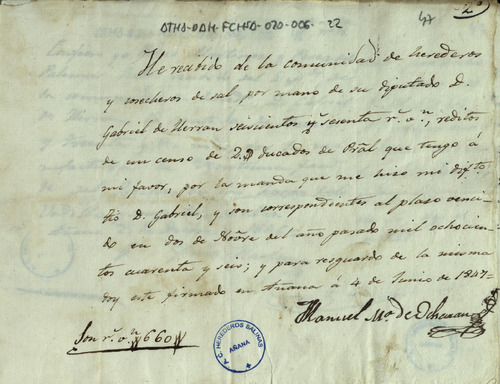 ATHA-DAH-FCHSA-020-006-22
2º
He recibido de la comunidad de herederos
y cosecheros de sal por mano de su diputado D.
Gabriel de Herran seiscientos y sesenta r.ˢ v.ⁿ, reditos
de un censo de ducados de Pral que tengo á
mi favor, por la manda que me hizo mi dif.to
tio D. Gabriel, y son correspondientes al plazo venci-
do en dos de Nbre del año pasado mil ochocien-
tos cuarenta y seis; y para resguardo de la misma
doy este firmado en Añana á 4 de Junio de 1847
Manuel M.ª de Echavarri
Son r.ˢ v.ⁿ 660
A.C. HEREDEROS SALINAS
AÑANA